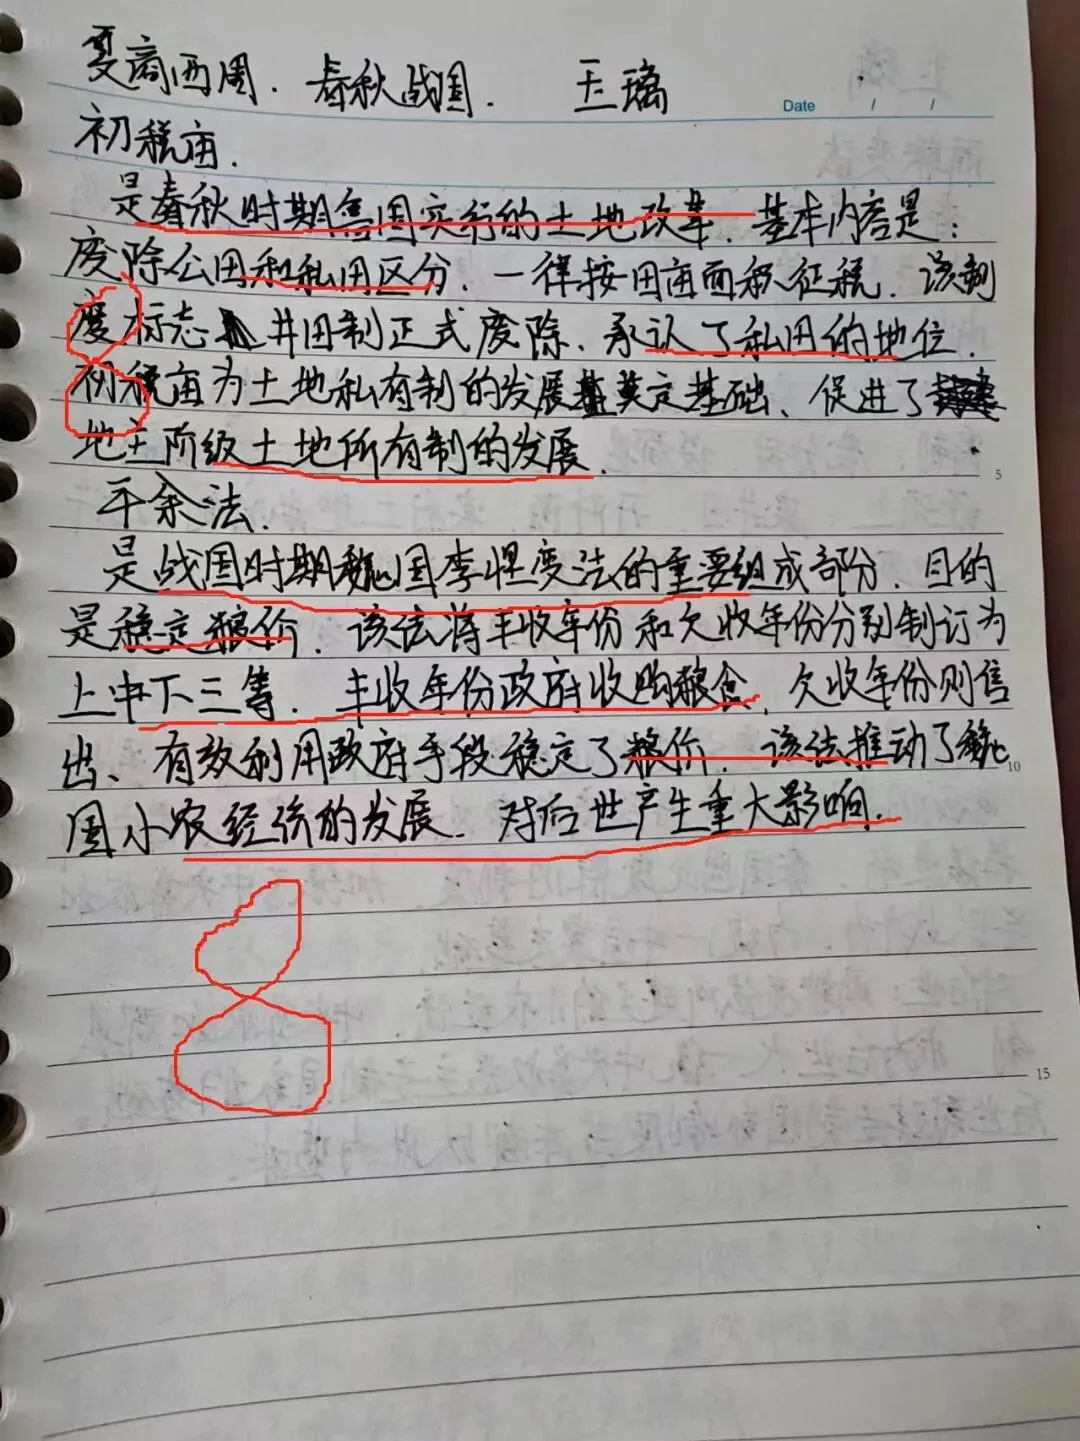 夏商西周. 春秋战国. 王璃
Date / /
初税亩.
是春秋时期鲁国实行的土地改革. 基本内容是:
废除公田和私田区分、一律按田亩面积征税. 该制
度标志 井田制正式废除、承认了私田的地位.
初税亩为土地私有制的发展奠定基础、促进了
地主阶级土地所有制的发展.
5
平余法.
是战国时期魏国李悝变法的重要组成部分. 目的
是稳定粮价. 该法将丰收年份和欠收年份分别制订为
上中下三等. 丰收年份政府收购粮食、欠收年份则售
出、有效利用政府手段稳定了粮价. 该法推动了魏
10
国小农经济的发展. 对后世产生重大影响.
15